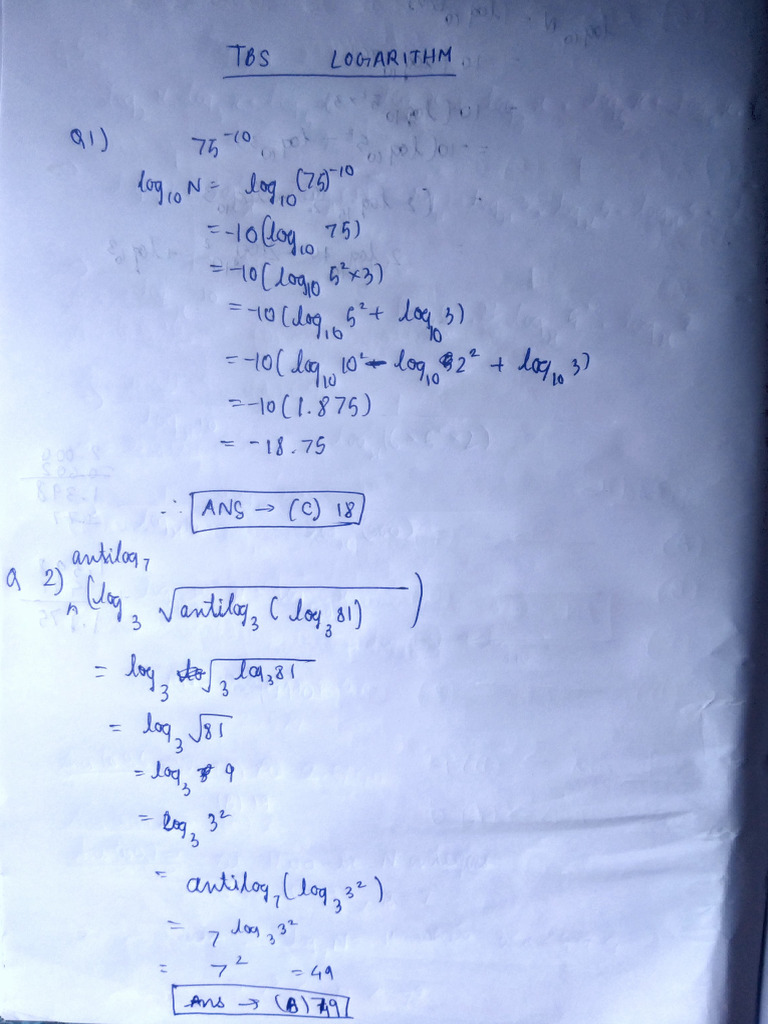 TBS LOGARITHM
Q1) 75⁻¹⁰
log₁₀ N = log₁₀ (75)⁻¹⁰
= -10(log₁₀ 75)
= -10(log₁₀ 5²×3)
= -10(log₁₀ 5² + log₁₀ 3)
= -10(log₁₀ 10² - log₁₀ 2² + log₁₀ 3)
= -10(1.875)
= -18.75
∴ ANS → (C) 18
Q 2) antilog₇ (log₃ √antilog₃ (log₃ 81))
= log₃ √3^log₃81
= log₃ √81
= log₃ 9
= log₃ 3²
= antilog₇ (log₃ 3²)
= 7^log₃ 3²
= 7² = 49
Ans → (B) 49